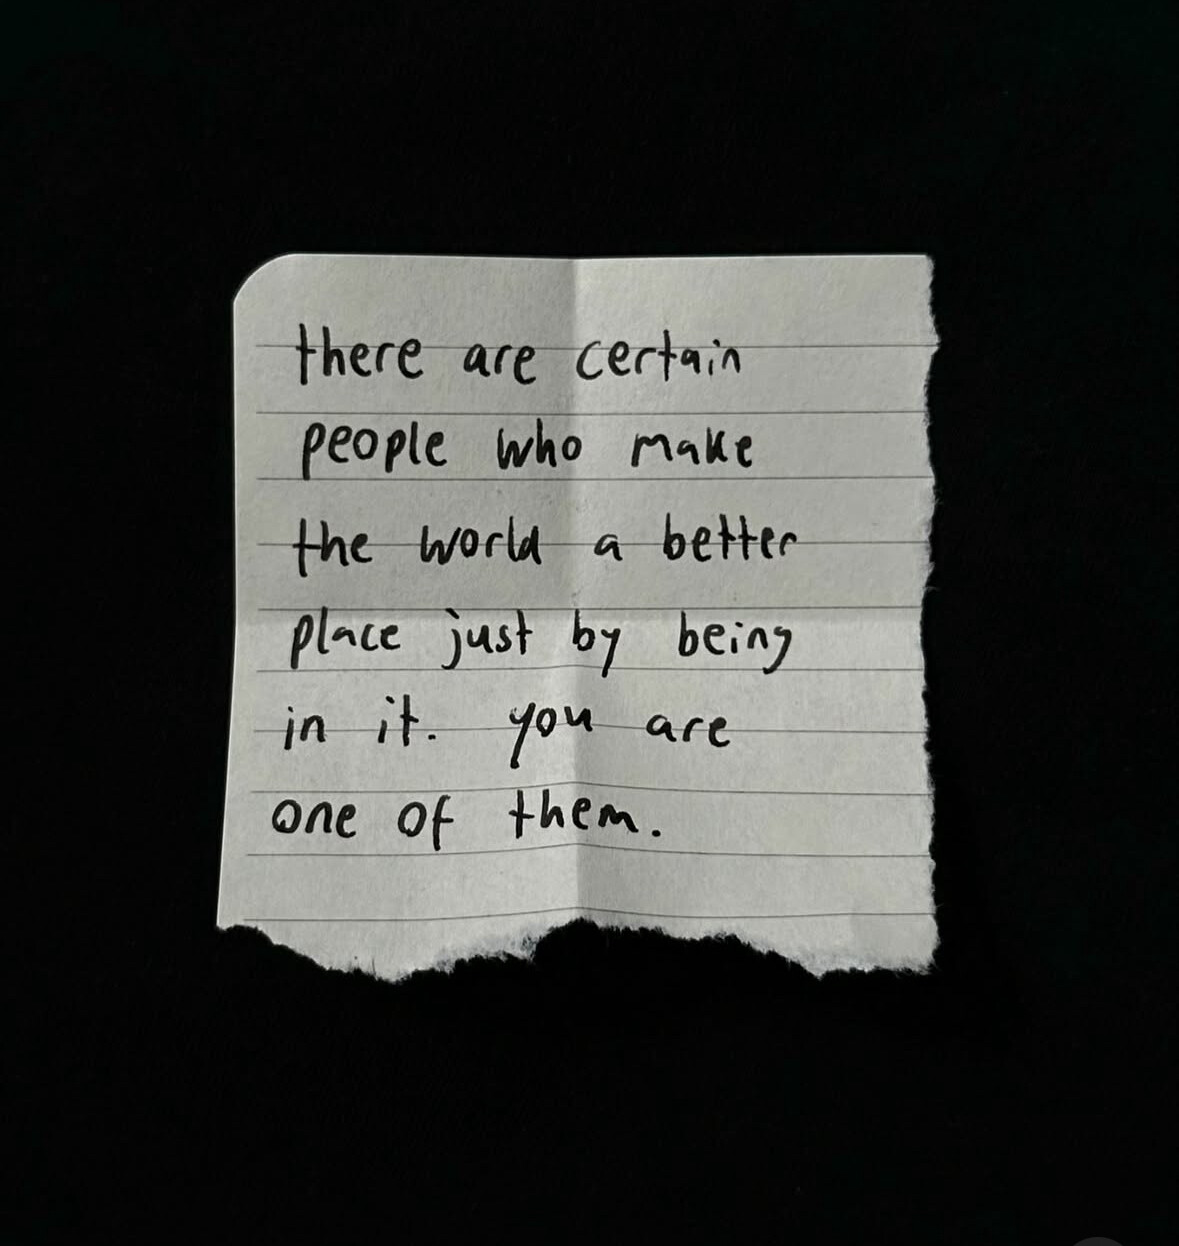 there are certain
people who make
the world a better
place just by being
in it. you are
one of them.